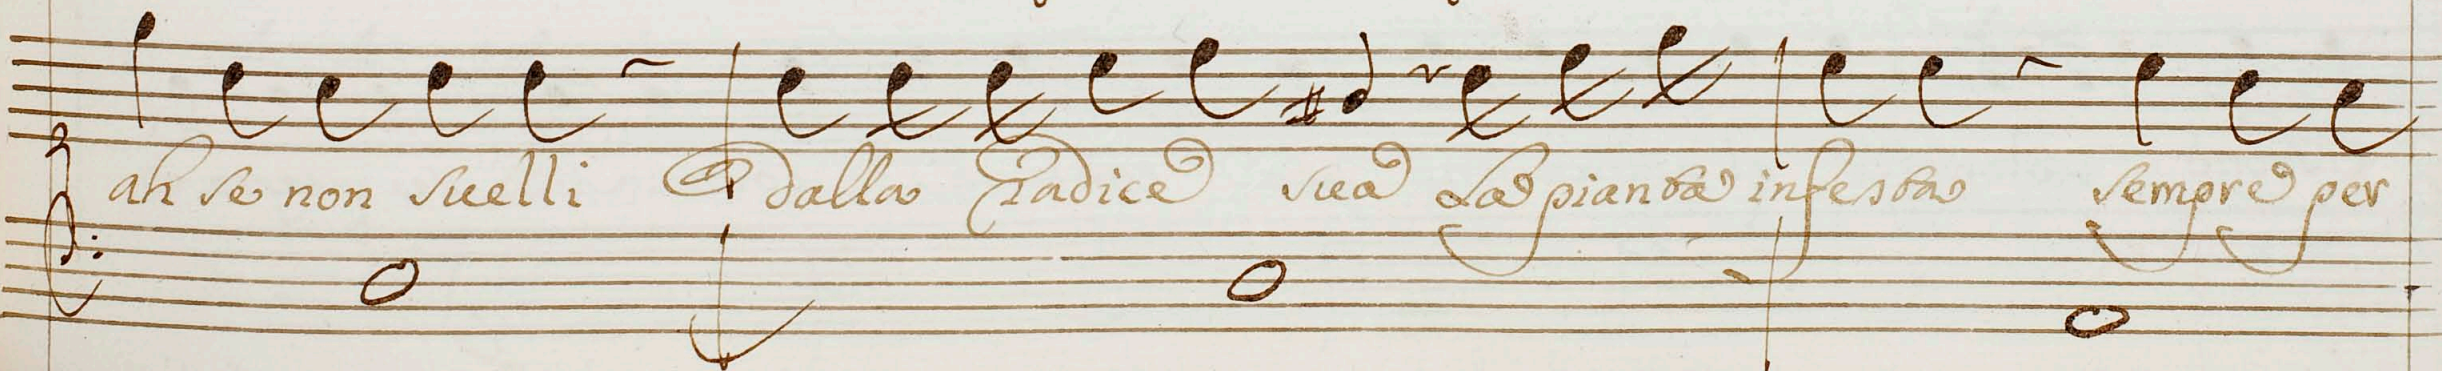 ah se non suelli dalla radice sua La pianta infesta sempre per